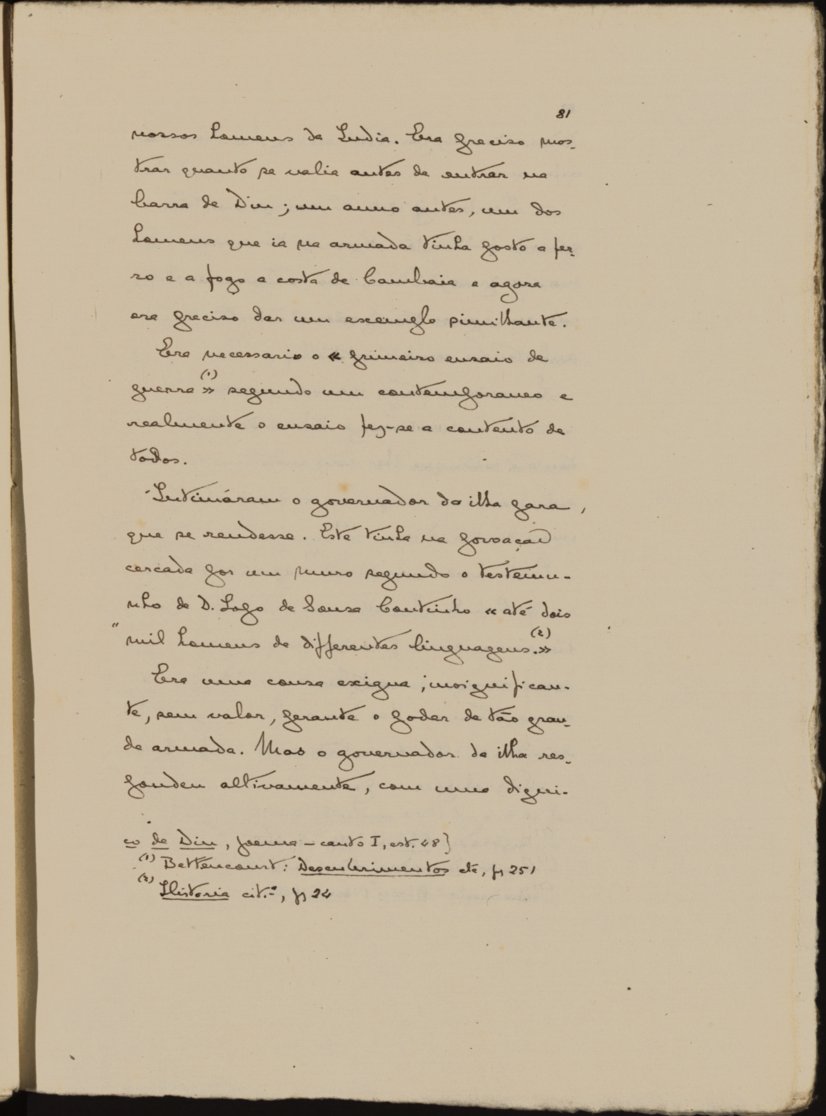 81
nossos homens da India. Era preciso mos-
trar quanto se valia antes de entrar na
barra de Diu; um anno antes, um dos
homens que ia na armada tinha posto a fer-
ro e a fogo a costa de Cambaia e agora
era preciso dar um exemplo similhante.
Era necessario o « primeiro ensaio de
guerra (1) » segundo um contemporaneo e
realmente o ensaio fez-se a contento de
todos.
Intimáram o governador da ilha para,
que se rendesse. Este tinha na povoação
cercada por um muro segundo o testemu-
nho de D. Lopo de Sousa Coutinho « até dois
" mil homens de differentes linguagens. (2) »
Era uma cousa exigua, insignifican-
te, sem valor, perante o poder de tão gran-
de armada. Mas o governador da ilha res-
pondeu altivamente, com uma digni-
co de Diu, poema – canto I, est. 48]
(1) Bettencourt: Descubrimentos etc, p 251
(2) Historia cit.ª, p 24